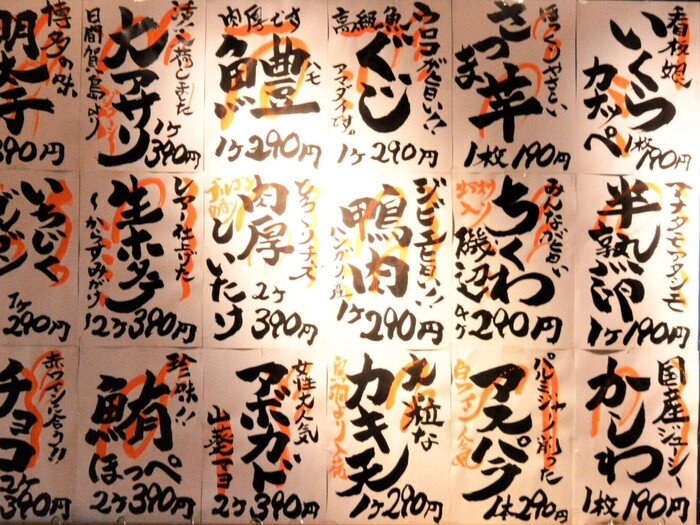 看板娘
いくら
カナッペ
1枚190円
さつま芋
1枚190円
ウロコが旨い!!
高級魚
ぐじ
アマダイです。
1ヶ290円
肉厚です
鱧
ハモ
1ヶ290円
大アサリ
日間賀島より
1ヶ390円
博多の味
明太子
390円
アナタモアタシモ
半熟卵
1ヶ190円
みんな大好き
ちくわ
磯辺
4ヶ290円
ジビエ旨い!!
鴨肉
ハンガリー産
1ヶ290円
とろ〜りチーズ
肉厚
しいたけ
2ヶ390円
レアー仕上げた
生ホタテ
〜からすみがけ〜
2ヶ390円
いちじく
1ヶ290円
国産ジューシー
かしわ
1枚190円
パルミジャーノ削った
アスパラ
白ワイン人気
1本290円
大粒な
カキ天
1ヶ290円
女性大人気
アボカド
山葵マヨ
2ヶ390円
珍味!!
鮪
ほっぺ
2ヶ390円
赤ワインに合う!!
チョコ
2ヶ390円